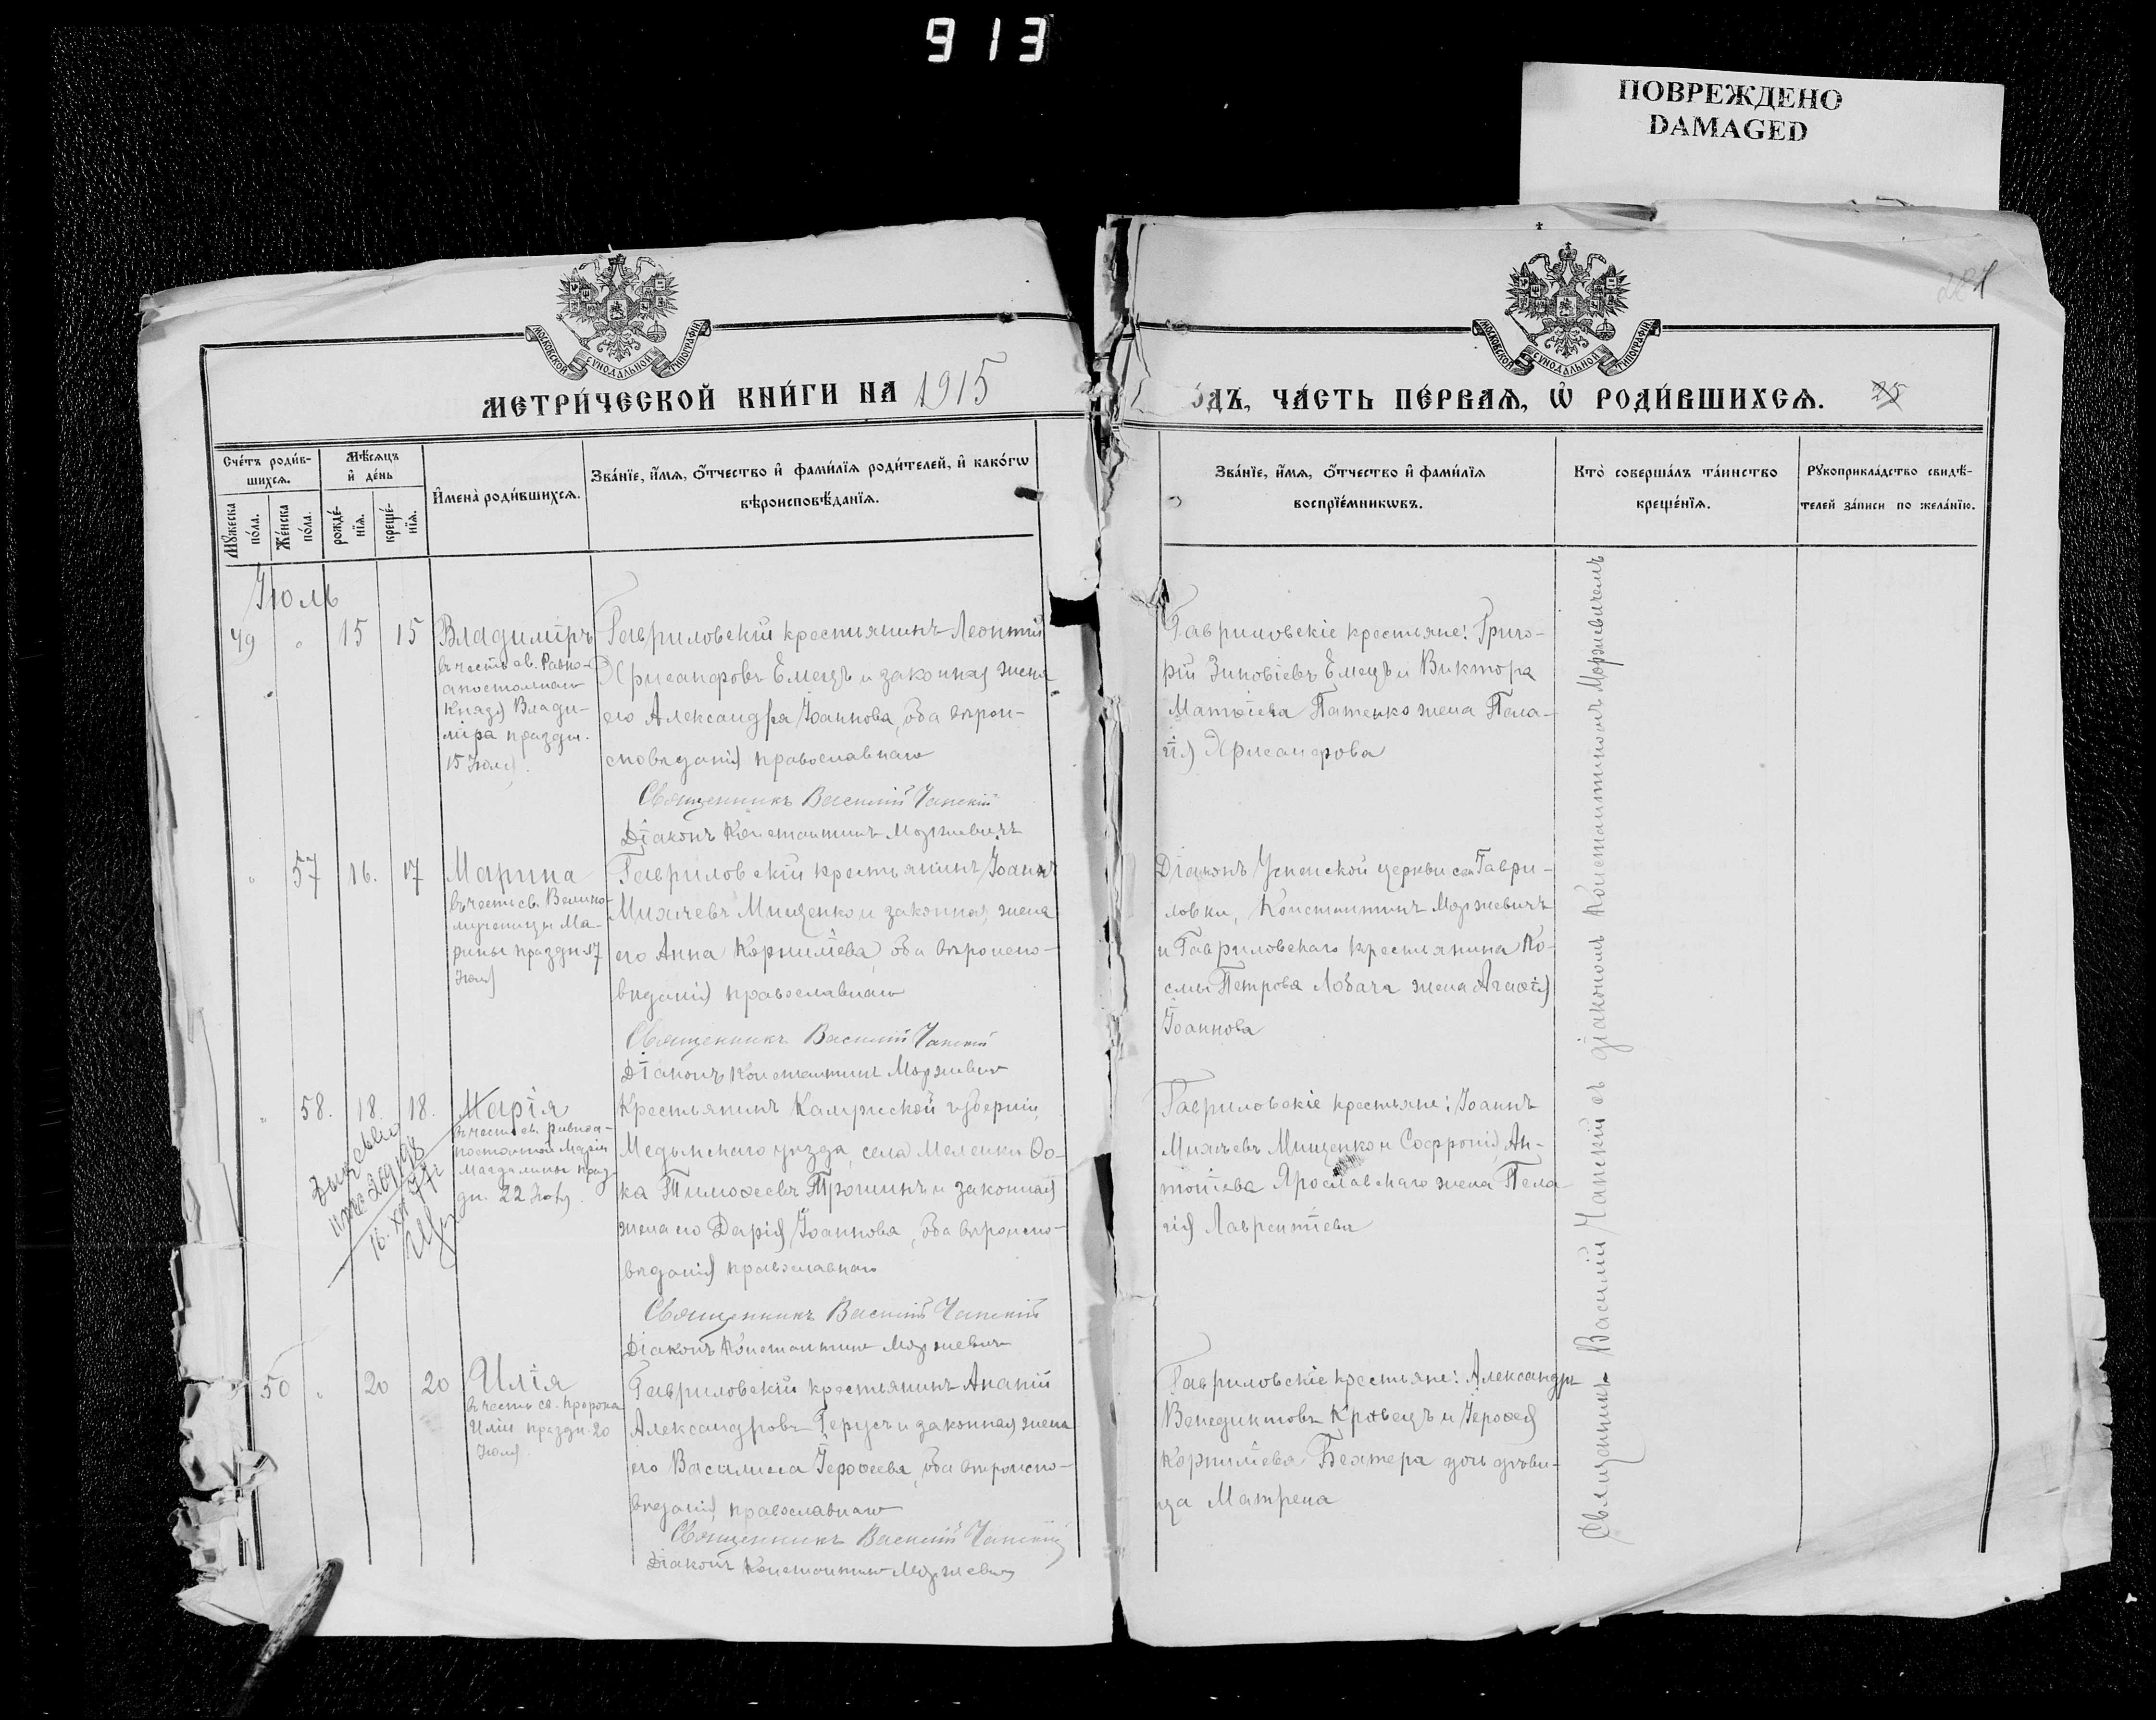 913
ПОВРЕЖДЕНО
DAMAGED
МОСКОВСКОЙ СУНОДАЛЬНОЙ ТИПОГРАФІИ
МОСКОВСКОЙ СУНОДАЛЬНОЙ ТИПОГРАФІИ
МЕТРИ́ЧЕСКОЙ КНИ́ГИ НА 1915
ОДЪ, ЧА́СТЬ ПЕ́РВАѦ, Ѡ҆ РОДИ́ВШИХСѦ. 25
Сче́тъ роди́в-
шихсѧ.
Мꙋ́жеска по́ла.
Же́нска по́ла.
Мѣ́сѧцъ
и҆ де́нь
рожде́-
нїѧ.
креще́-
нїѧ.
И҆мена̀ роди́вшихсѧ.
Зва́нїе, и҆́мѧ, ѻ҆́тчество и҆ фами́лїѧ роди́телей, и҆ како́гѡ
вѣроисповѣ́данїѧ.
Зва́нїе, и҆́мѧ, ѻ҆́тчество и҆ фами́лїѧ
воспрїе́мникѡвъ.
Кто̀ соверша́лъ та́инство
креще́нїѧ.
Рꙋкоприкла́дство свидѣ́-
телей за́писи по жела́нїю.
Іюль
49 " 15 15 Владиміръ
въ честь св. Равно-
апостольнаго
Князя Влади-
міра праздн.
15 Іюля.
Гавриловскій крестьянинъ Леонтій
Хрисанфовъ Емецъ и законная жена
его Александра Іоаннова, оба вѣрои-
сповѣданія православнаго
Священникъ Василій Чапскій
Діаконъ Константинъ Моржевичъ
Гавриловскіе крестьяне: Григо-
рій Зиновіевъ Емецъ и Виктора
Матѳіева Патенко жена Пела-
гія Хрисанфова
" 57 16. 17 Марина
въ честь св. Велико-
мученицы Ма-
рины праздн 17
Іюля
Гавриловскій крестьянинъ Іоаннъ
Михеевъ Мищенко и законная жена
его Анна Корниліева, оба вѣроиспо-
вѣданія православнаго
Священникъ Василій Чапскій
Діаконъ Константинъ Моржевичъ
Діаконъ Успенской церкви сел Гаври-
ловки, Константинъ Моржевичъ
и Гавриловскаго крестьянина Ко-
смы Петрова Лобача жена Агаѳія
Іоаннова
" 58. 18. 18. Марія
въ честь св. равноа-
постольной Маріи
Магдалины праз-
дн. 22 Іюля.
Крестьянинъ Калужской губерніи,
Медынскаго уѣзда, села Меленки Ѳо-
ка Тимоѳеевъ Трошинъ и законная
жена его Дарія Іоаннова, оба вѣроиспо-
вѣданія православнаго
Священникъ Василій Чапскій
Діаконъ Константинъ Моржевичъ
Гавриловскіе крестьяне: Іоаннъ
Михеевъ Мищенко и Софронія Ан-
тоніева Ярославскаго жена Пела-
гія Лаврентіева
50 " 20 20 Илія
въ честь св. пророка
Иліи праздн. 20
Іюля.
Гавриловскій крестьянинъ Ананій
Александровъ Герусъ и законная жена
его Василиса Іероѳеева, оба вѣроиспо-
вѣданія православнаго
Священникъ Василій Чапскій
Діаконъ Константинъ Моржевичъ
Гавриловскіе крестьяне: Александръ
Венедиктовъ Кравецъ и Іероѳея
Корниліева Бехтера дочь дѣви-
ца Матрена
Священникъ Василій Чапскій съ діакономъ Константиномъ Моржевичемъ